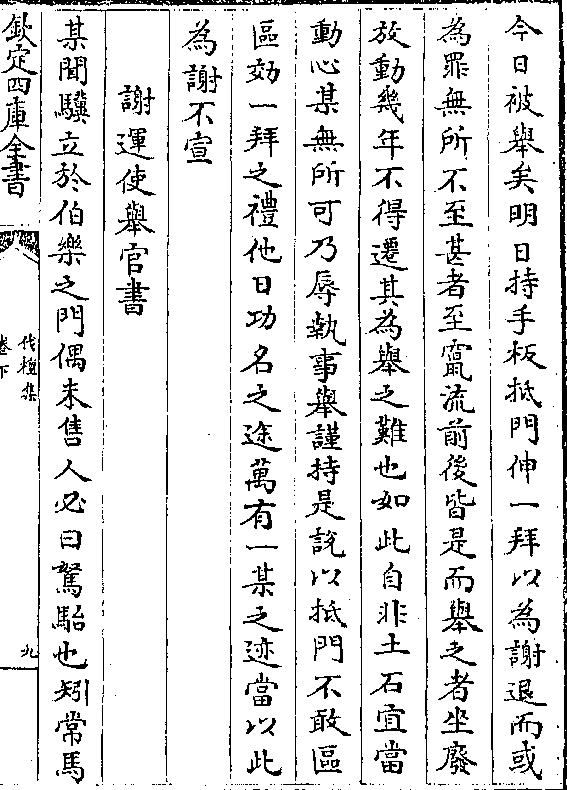 今日被舉矣明日持手板抵門伸一拜以為謝退而或
為罪無所不至甚者至竄流前後皆是而舉之者坐廢
放動幾年不得遷其為舉之難也如此自非土石宜當
動心某無所可乃辱執事舉謹持是說以抵門不敢區
區効一拜之禮他日功名之途萬有一某之迹當以此
為謝不宣
謝運使舉官書
某聞驥立於伯樂之門偶未售人必曰駑駘也矧常馬
欽定四庫全書
伐檀集
卷下
九